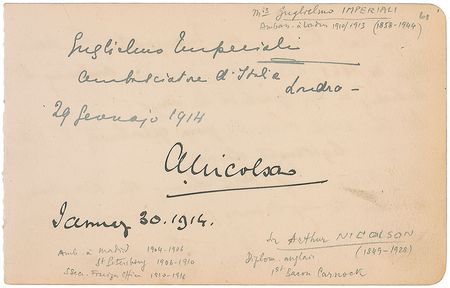 Mis Guglielmo IMPERIALI
Ambas. à Londres 1910/1913 (1858-1944)
Guglielmo Imperiali
Ambasciatore d'Italia
Londra -
29 Gennajo 1914
A Nicolson
January 30. 1914.
Sir Arthur NICOLSON
(1849-1928)
Diplom. anglais
1st Baron Carnock
Amb. à Madrid 1904-1906
St Petersburg 1906-1910
S. Secr. Foreign Office 1910-1916